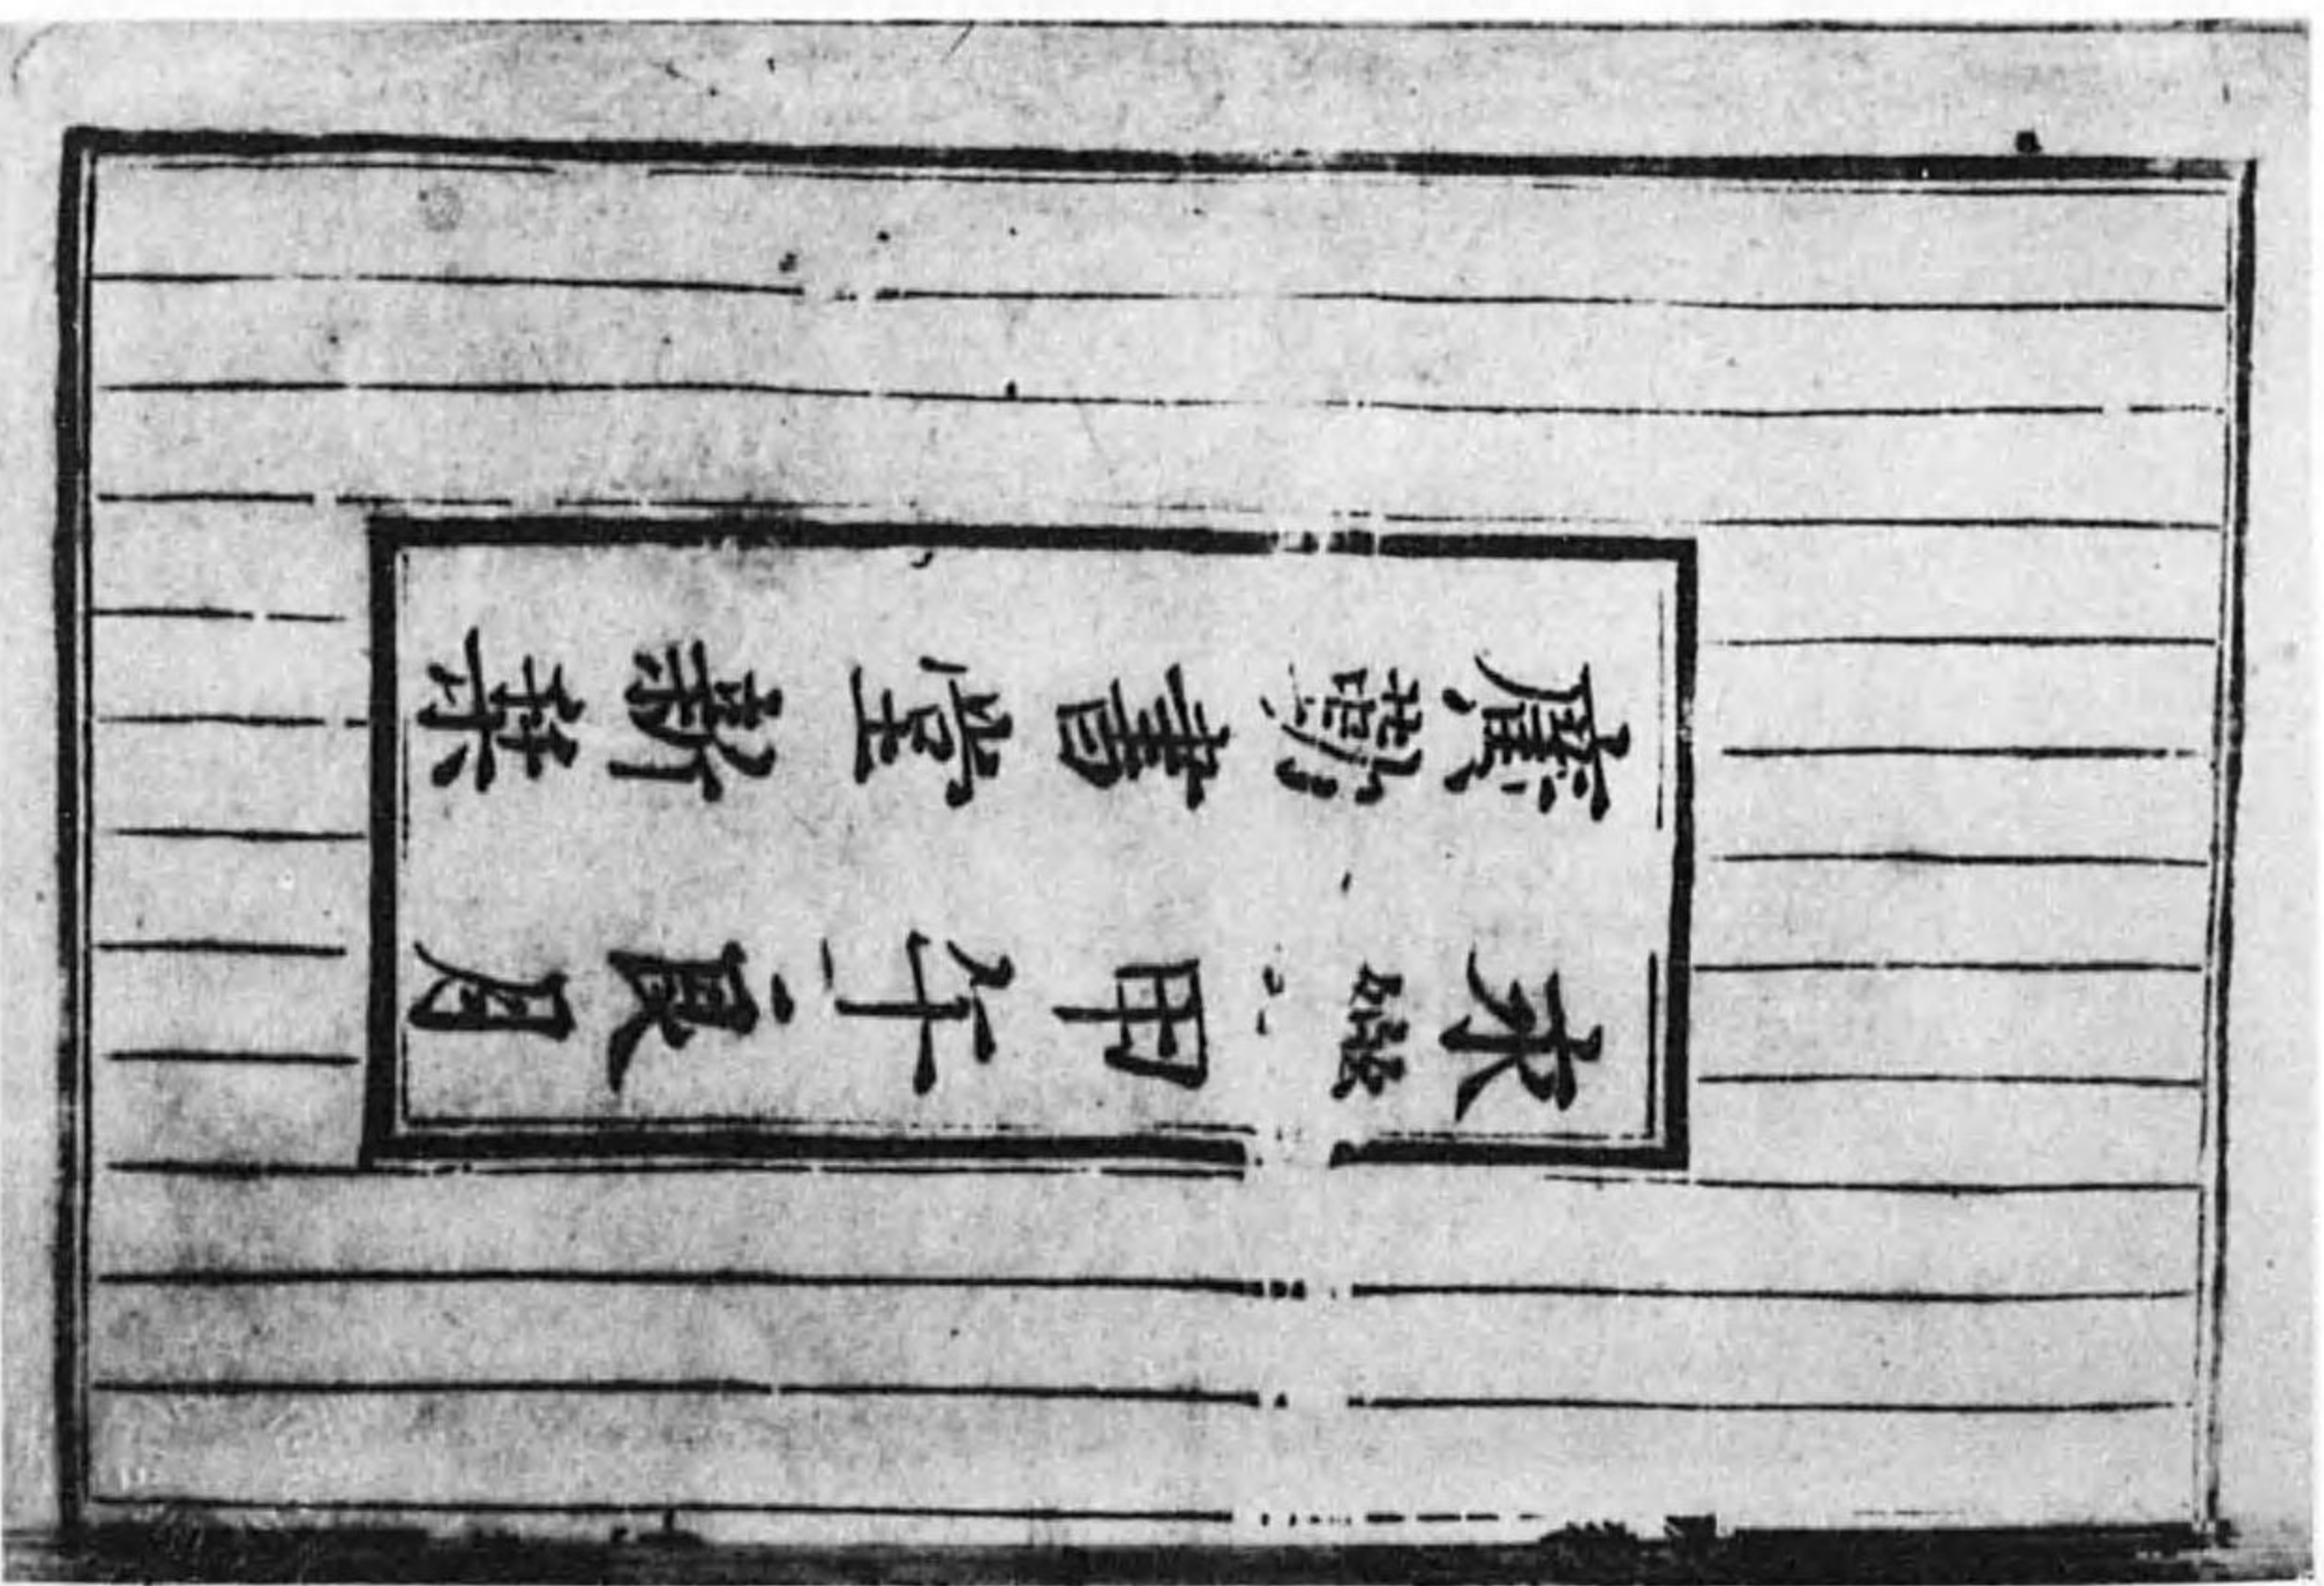 永樂甲午良月
廣勤書堂新栞